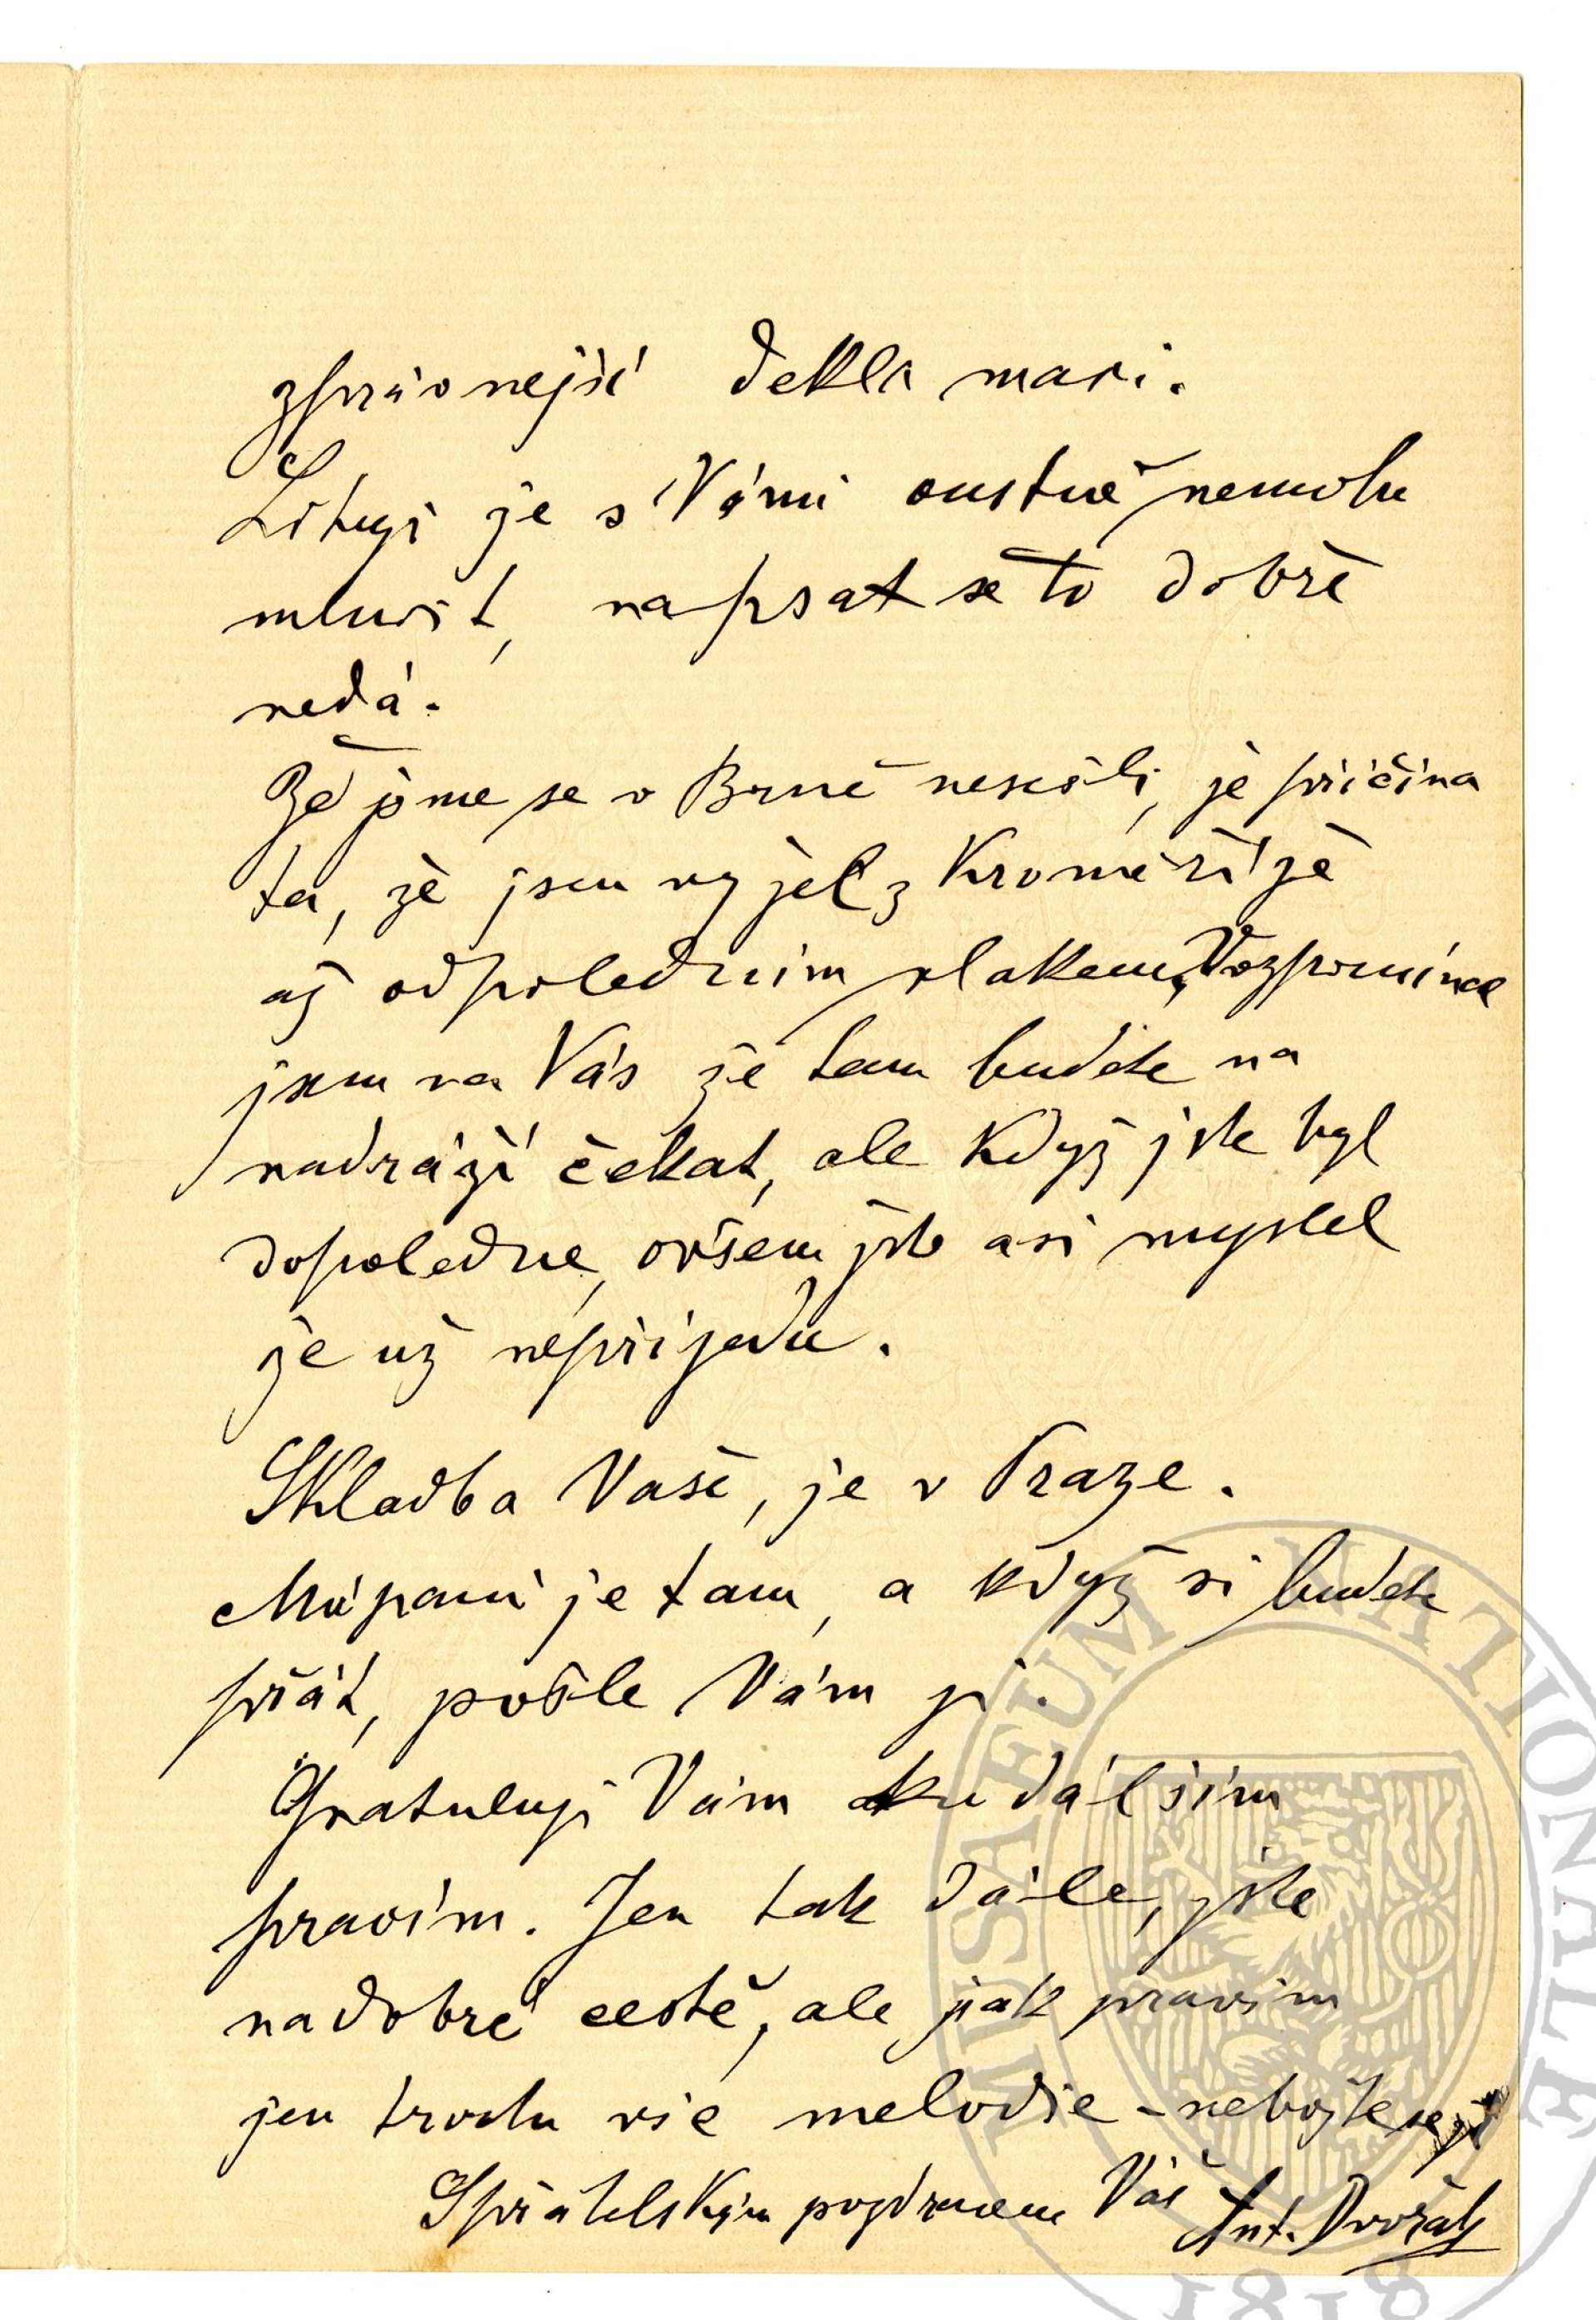 zprávnější deklamaci.
Lituji že s Vámi oustně nemohu
mluvit, napsat se to dobře
nedá.
Že jsme se v Brně nesešli, je příčina
ta, že jsem vyjel z Kroměříže
až odpoledním vlakem, Vzpomínal
jsem na Vás že tam budete na
nádraží čekat, ale když jste byl
dopoledne, ovšem jste asi myslel
že už nepřijedu.
Skladba Vaše, je v Praze.
Má paní je tam, a když si budete
přát, pošle Vám ji.
Gratuluji Vám ku dálším
pracím. Jen tak dále, jste
na dobré cestě, ale jak pravím
jen trochu víc melodie - nebojte se jí
S přátelským pozdravem Váš Ant. Dvořák
MUSAEUM NATIONALE
1818